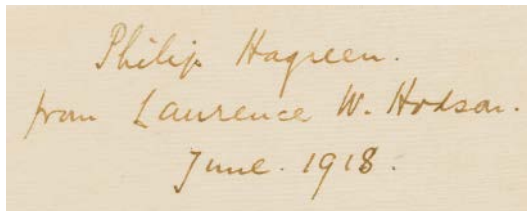 Philip Hagreen.
from Laurence W. Hodson.
June. 1918.